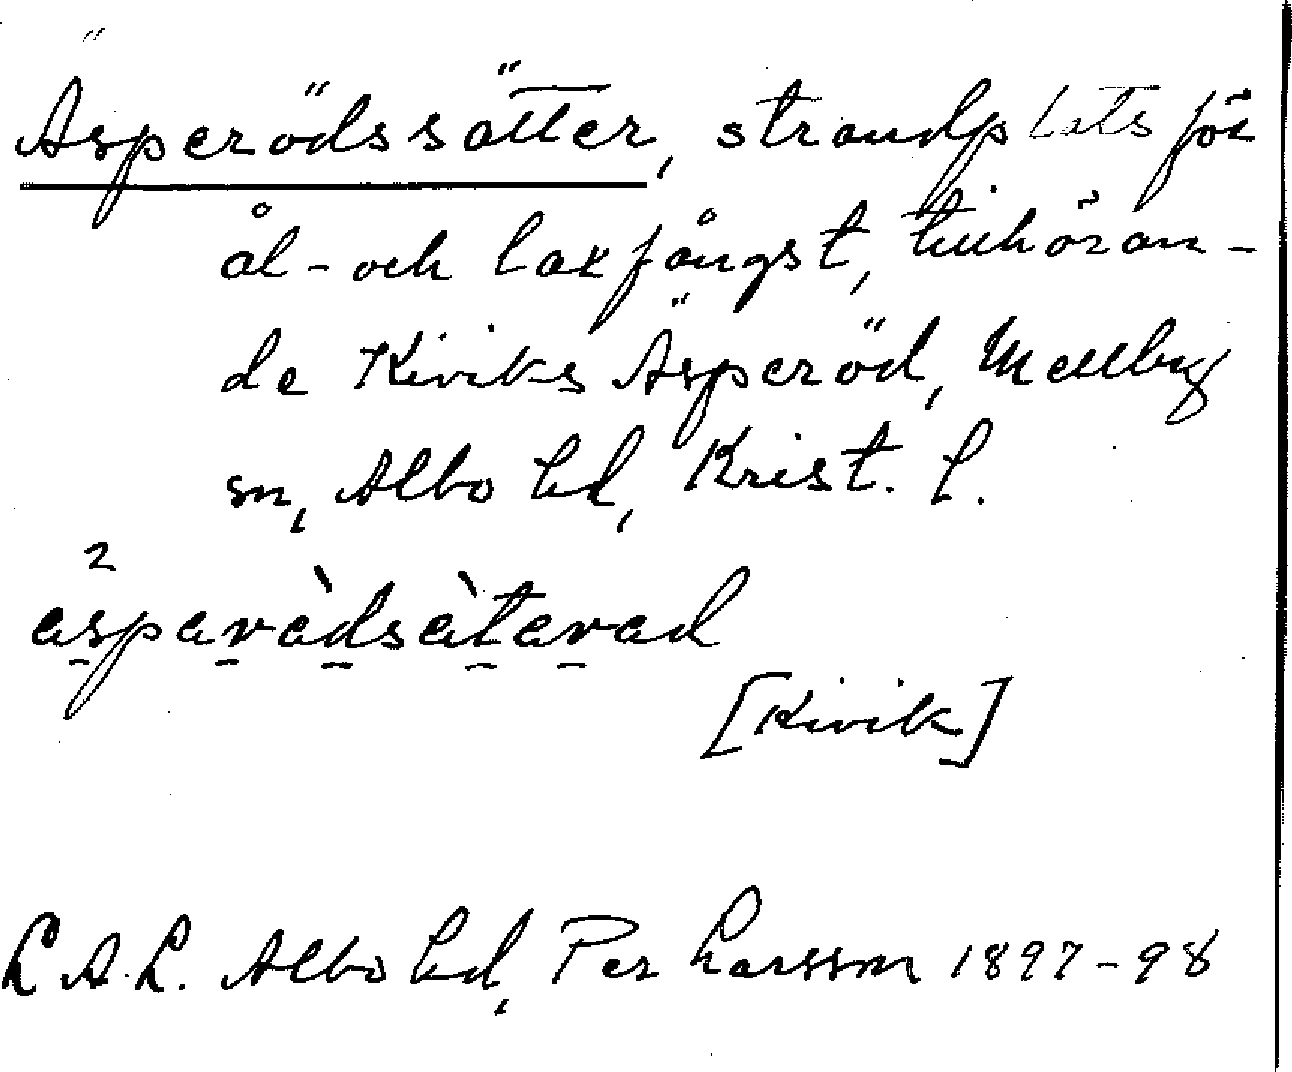 Äsperödssätter, strandplats för
ål- och laxfångst, tillhöran-
de Kiviks Äsperöd, Mellby
sn, Albo hd, Krist. l.
[Kivik]
L.A.L. Albo hd, Per Larsson 1897-98